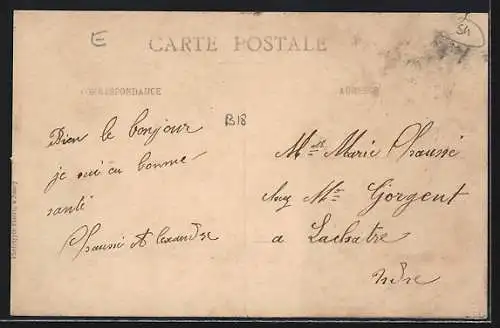 E
CARTE POSTALE
54
CORRESPONDANCE
ADRESSE
B18
Bien le bonjour
je sui en bonne
santé
Chaussé Alexandre
Mlle Marie Chaussé
Chez Mr Gorgent
a Lachatre
Indre